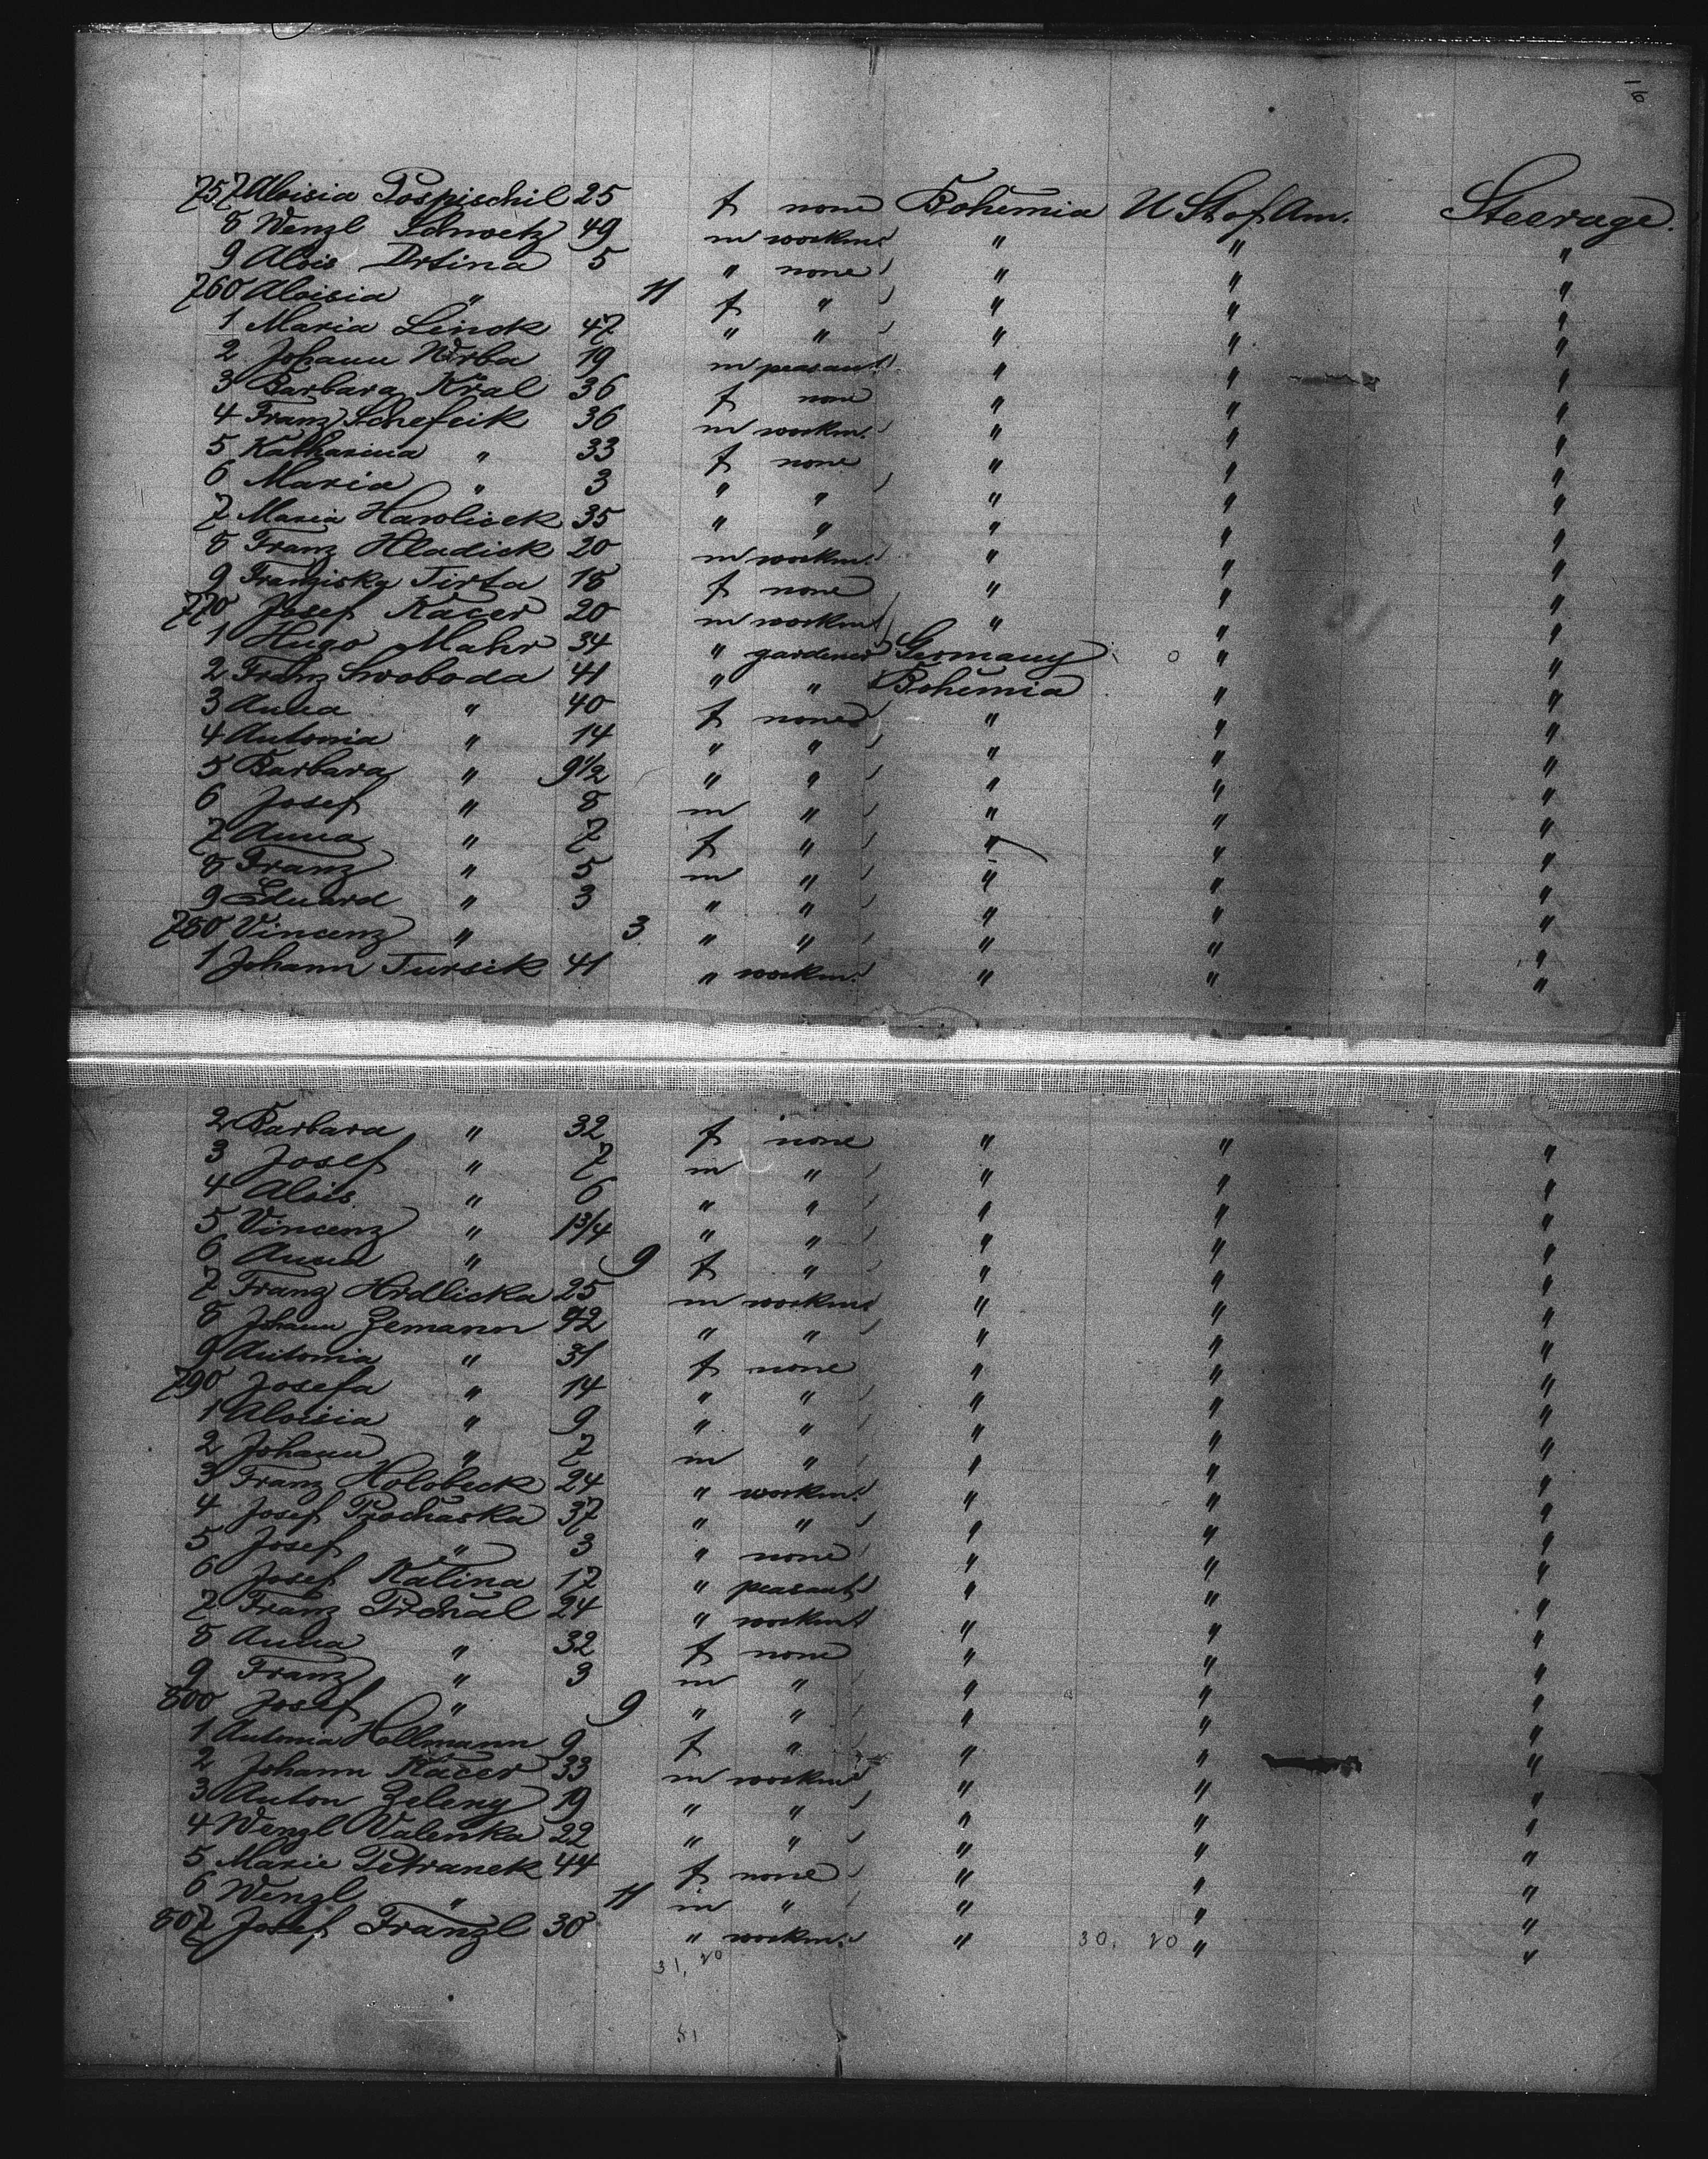 757 Aloisia Pospischil 25 f none Bohemia U St of Am. Steerage.
8 Wenzl Schwetz 49 m workm. " " "
9 Alois Drtina 5 " none " " "
760 Aloisia " 11 f " " " "
1 Maria Linck 47 " " " " "
2 Johann Wrba 19 m peasant " " "
3 Barbara Kral 36 f none " " "
4 Franz Schefcik 36 m workm. " " "
5 Katharina " 33 f none " " "
6 Maria " 3 " " " " "
7 Maria Hawlicek 35 " " " " "
8 Franz Hladick 20 m workm. " " "
9 Franziska Tirta 18 f none " " "
770 Josef Kacer 20 m workm " " "
1 Hugo Mahr 34 " gardener Germany " "
2 Franz Swoboda 41 " " Bohemia " "
3 Anna " 40 f none " " "
4 Antonia " 14 " " " " "
5 Barbara " 9 1/2 " " " " "
6 Josef " 8 m " " " "
7 Anna " 7 f " " " "
8 Franz " 5 m " " " "
9 Eduard " 3 " " " " "
780 Vincenz " 3 " " " " "
1 Johann Tursik 41 " workm. " " "
2 Barbara " 32 f none " " "
3 Josef " 7 m " " " "
4 Alois " 6 " " " " "
5 Vincenz " 1 3/4 " " " " "
6 Anna " 9 f " " " "
7 Franz Hrdlicka 25 m workm " " "
8 Johann Zemann 42 " " " " "
9 Antonia " 31 f none " " "
790 Josefa " 14 " " " " "
1 Aloisia " 9 " " " " "
2 Johann " 7 m " " " "
3 Franz Holobeck 24 " workm. " " "
4 Josef Prochaska 37 " " " " "
5 Josef " 3 " none " " "
6 Josef Kalina 17 " peasant " " "
7 Franz Prchal 24 " workm " " "
8 Anna " 32 f none " " "
9 Franz " 3 m " " " "
800 Josef " 9 " " " " "
1 Antonia Hollmann 9 f " " " "
2 Johann Kacer 33 m workm " " "
3 Anton Zeleny 19 " " " " "
4 Wenzl Valenka 22 " " " " "
5 Marie Petranek 44 f none " " "
6 Wenzl " 11 m " " " "
807 Josef Franzl 30 " workm. " " "
30. 20
31, 20
81